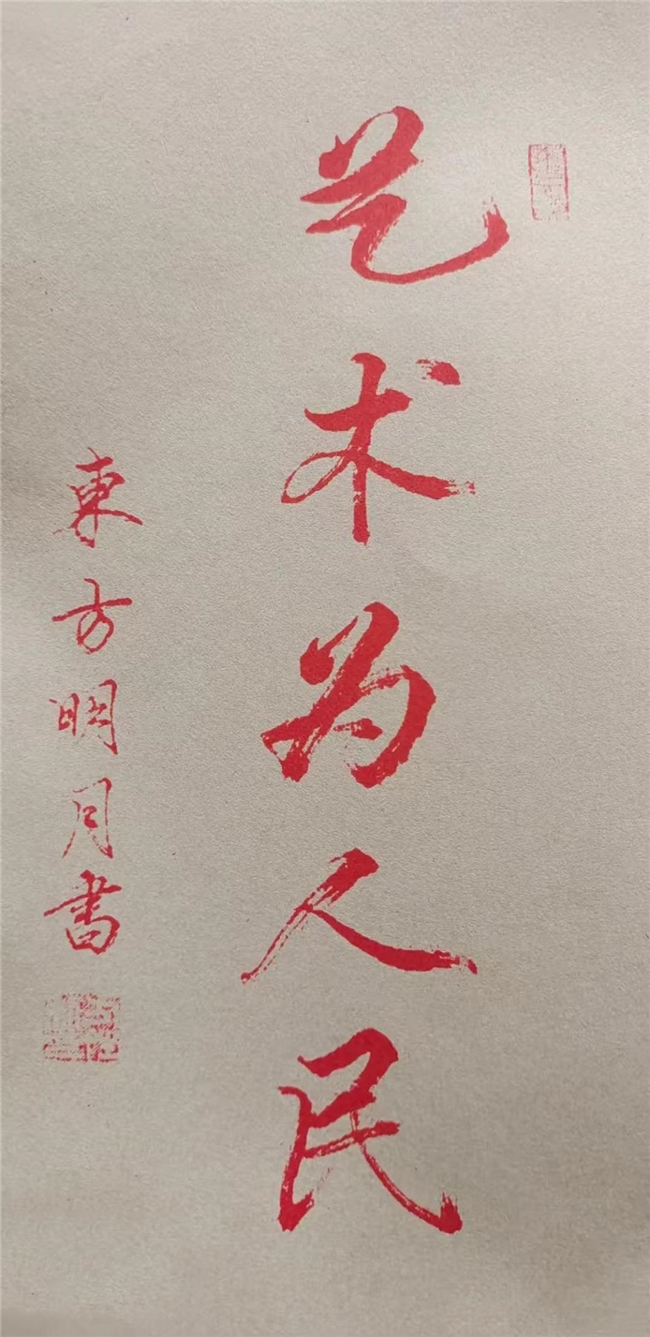 艺术为人民
東方明月书